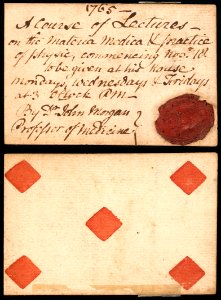 1765
A Course of Lectures
on the Materia Medica & practice
of physic, commencing Nov. 18
to be given at his house
mondays, Wednesdays & Fridays
at 3 Clock P.M.
By Dr. John Morgan
Professor of Medicine